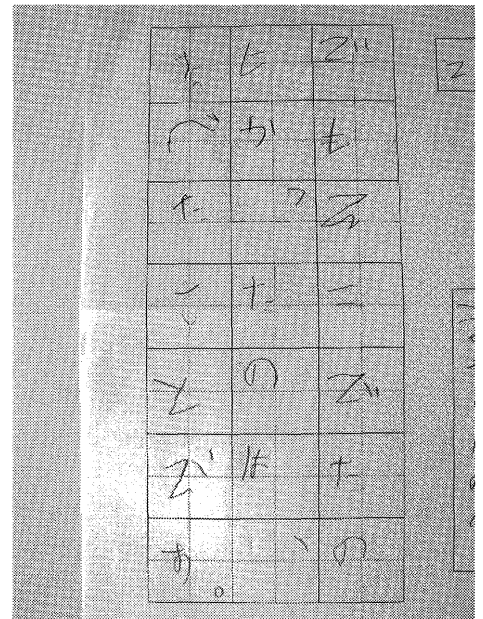 でもそこでたの
しかったのは、
たべたことです。